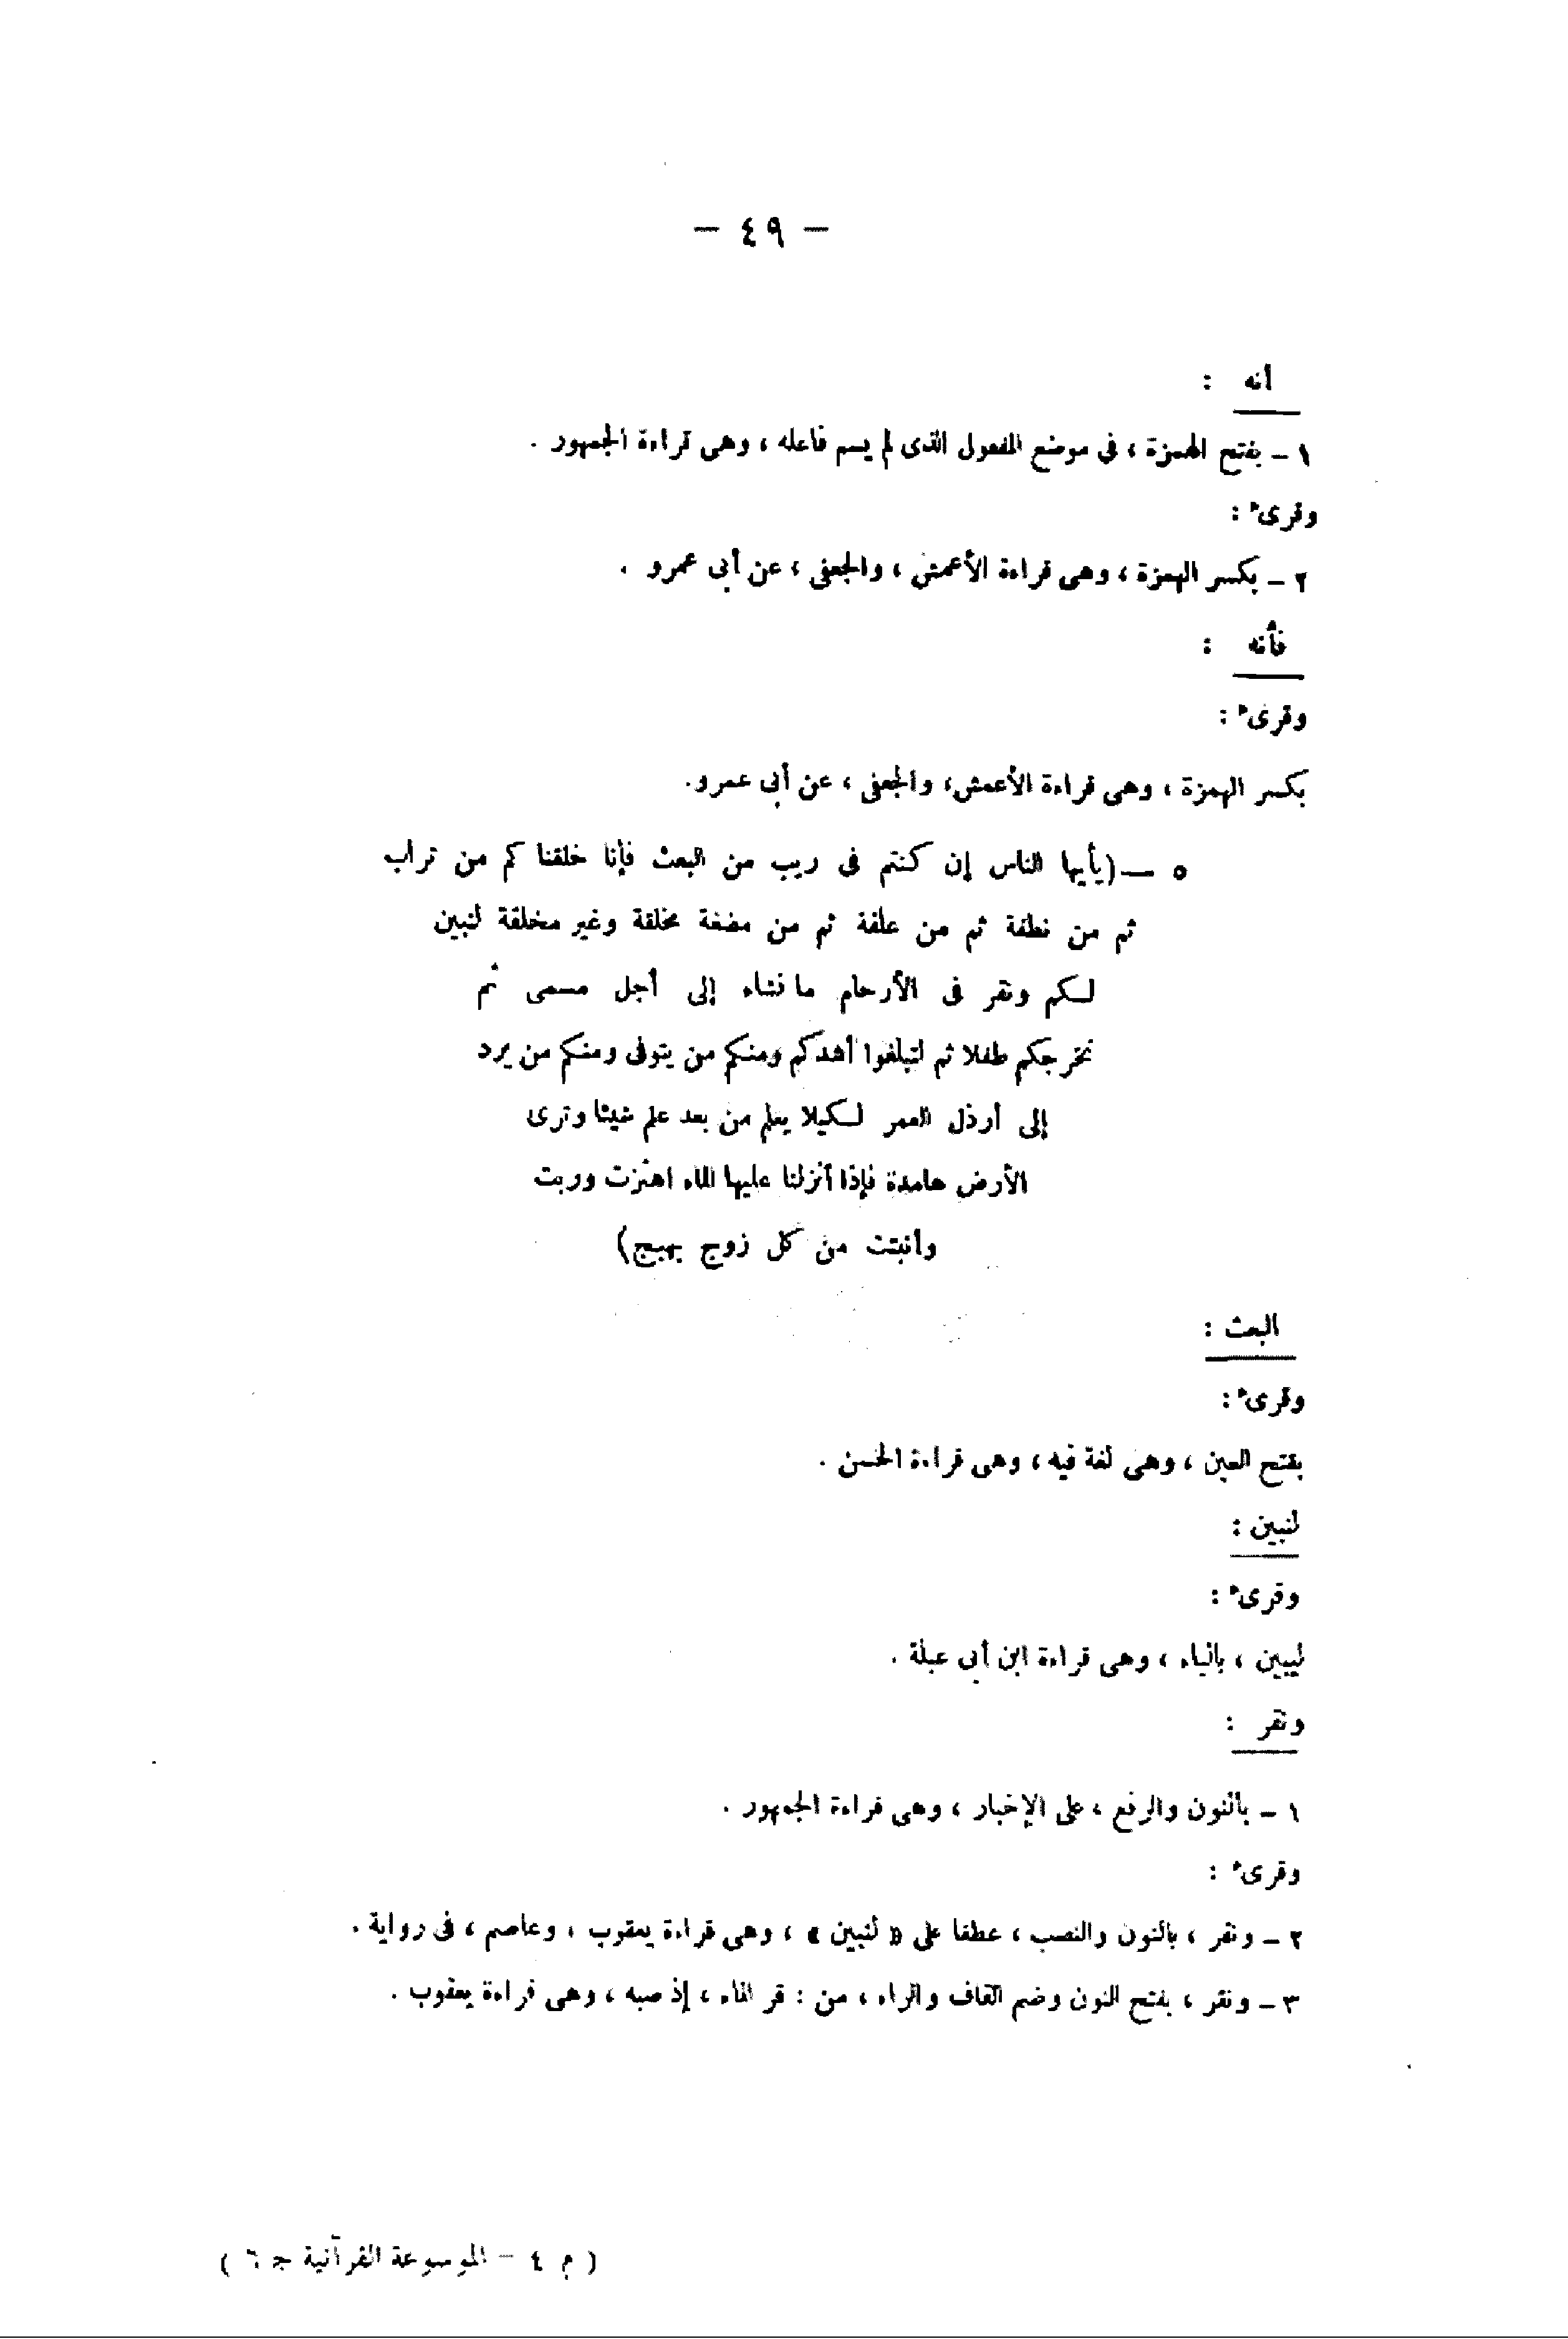 — ٤٩ —
أنه :
١ – بفتح الهمزة ، فى موضع المفعول الذى لم يسم فاعله ، وهى قراءة الجمهور .
وقرىء :
٢ – بكسر الهمزة ، وهى قراءة الأعمش ، والجعفى ، عن أبى عمرو .
فأنه :
وقرىء :
بكسر الهمزة ، وهى قراءة الأعمش، والجعفى ، عن أبى عمرو.
٥ — (يأيها الناس إن كنتم فى ريب من البعث فإنا خلقناكم من تراب
ثم من نطفة ثم من علقة ثم من مضغة مخلقة وغير مخلقة لنبين
لكم ونقر فى الأرحام ما نشاء إلى أجل مسمى ثم
نخرجكم طفلا ثم لتبلغوا أشدكم ومنكم من يتوفى ومنكم من يرد
إلى أرذل العمر لكيلا يعلم من بعد علم شيئا وترى
الأرض هامدة فإذا أنزلنا عليها الماء اهتزت وربت
وأنبتت من كل زوج بهيج)
البعث :
وقرىء :
بفتح العين ، وهى لغة فيه ، وهى قراءة الحسن .
لنبين :
وقرىء :
ليبين ، بالياء ، وهى قراءة ابن أبى عبلة .
ونقر :
١ – بالنون والرفع ، على الإخبار ، وهى قراءة الجمهور .
وقرىء :
٢ – ونقر ، بالنون والنصب ، عطفا على « لنبين » ، وهى قراءة يعقوب ، وعاصم ، فى رواية .
٣ – ونقر ، بفتح النون وضم القاف والراء ، من : قر الماء ، إذ صبه ، وهى قراءة يعقوب .
( م ٤ – الموسوعة القرآنية جـ ٦ )